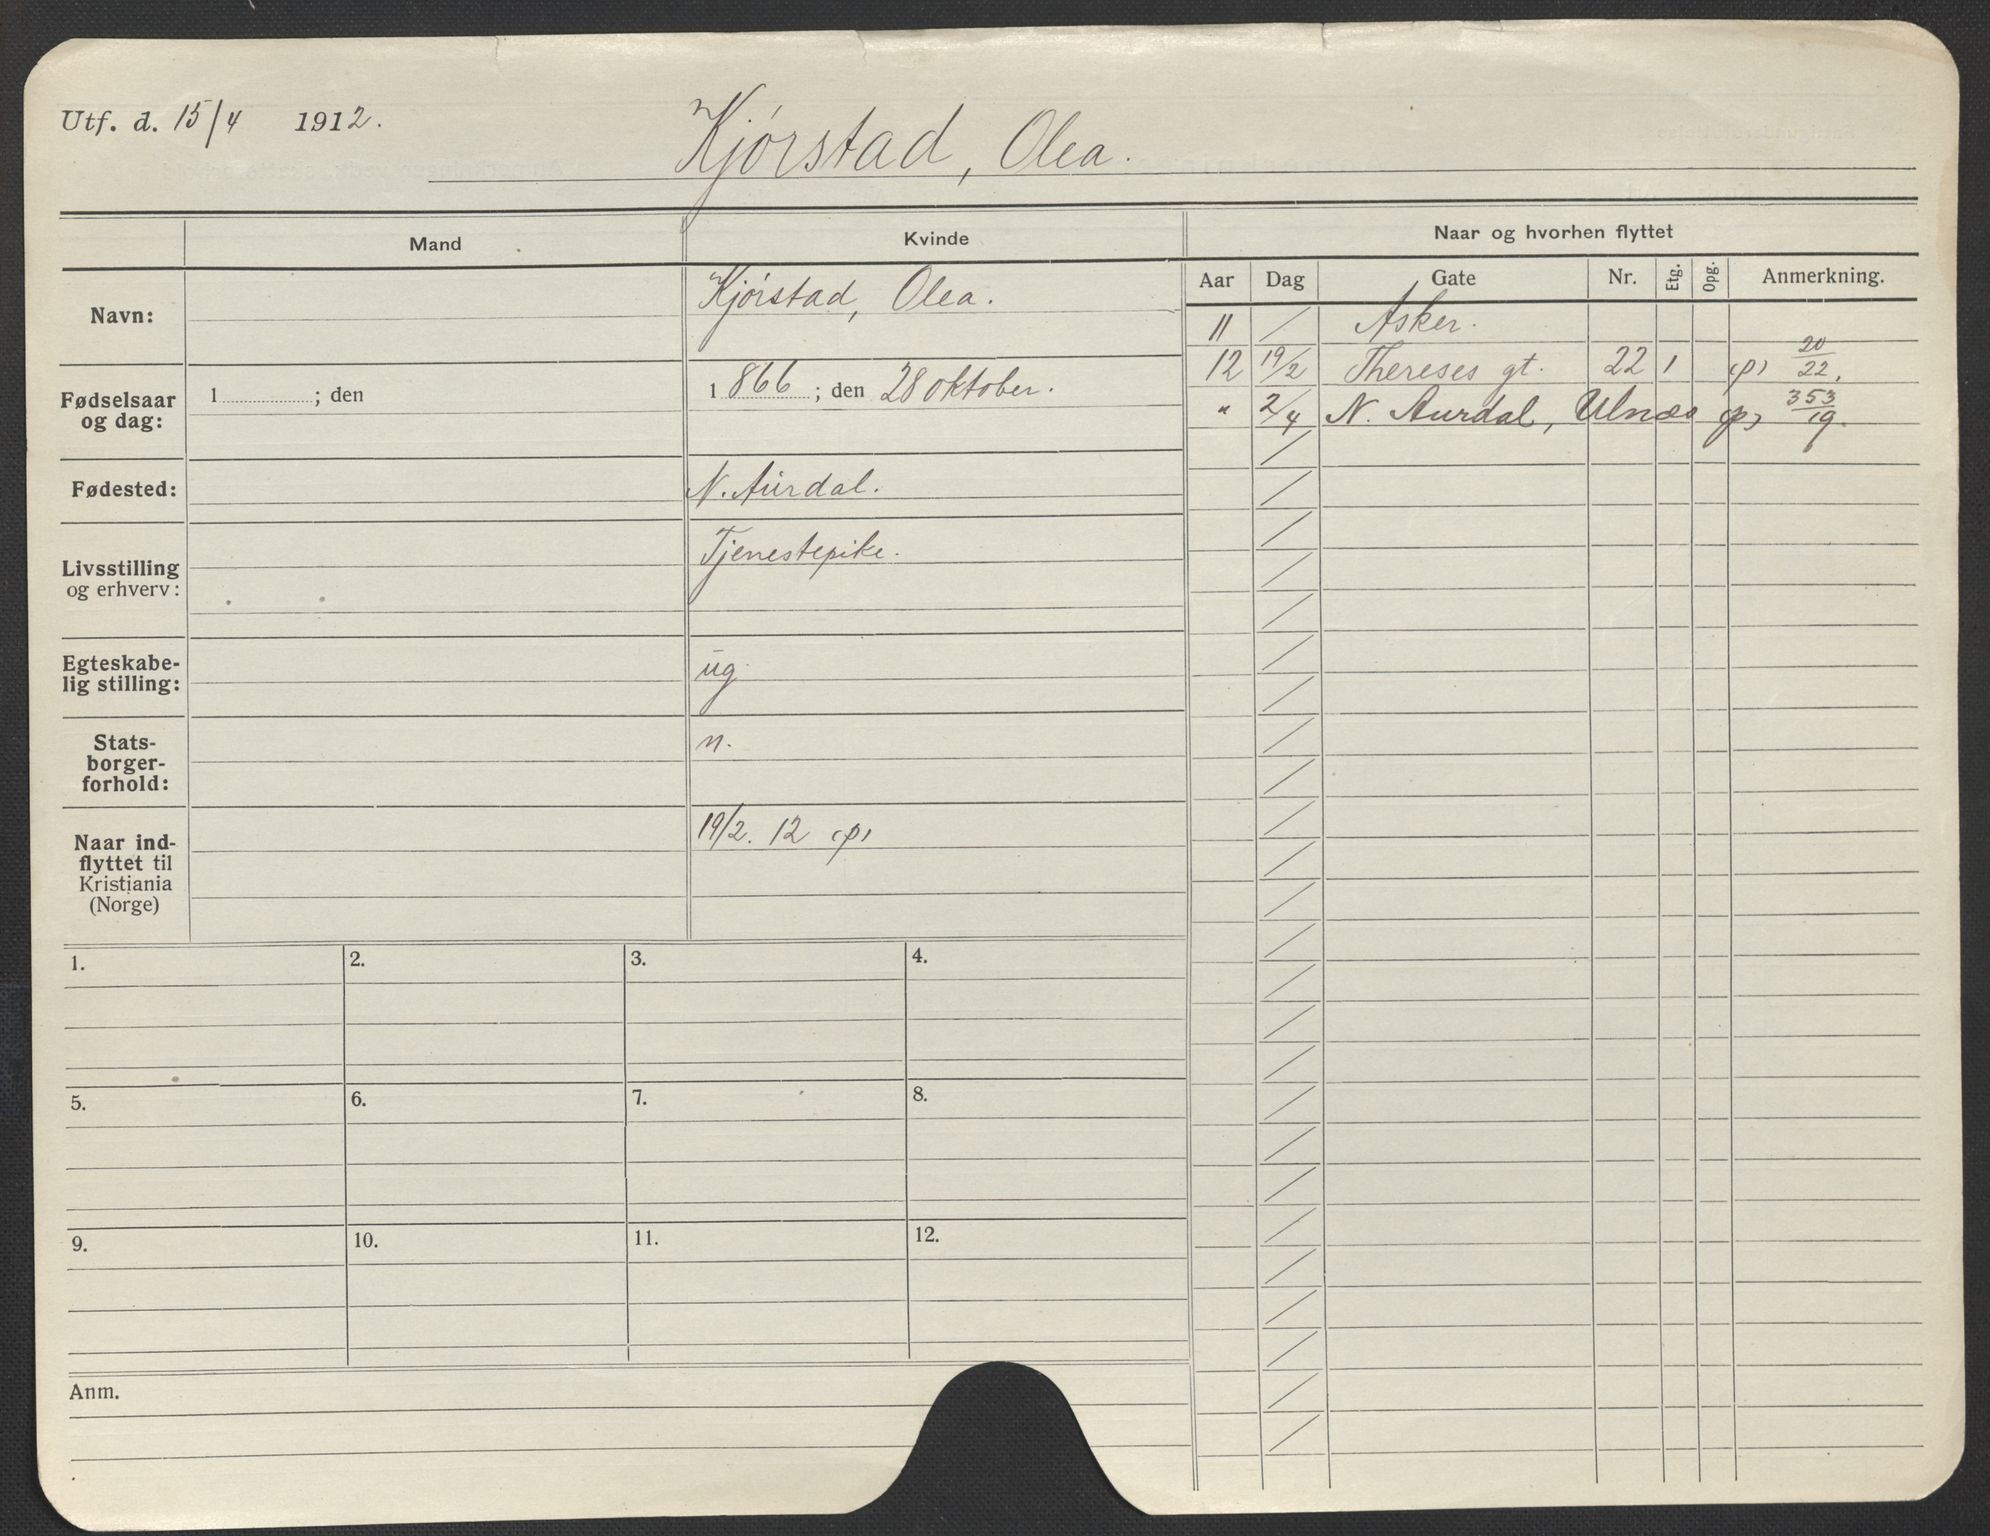 Utf. d. 15/4 1912.
Kjørstad, Olea.
Mand
Kvinde
Naar og hvorhen flyttet
Aar Dag Gate Nr. Etg. Opg. Anmerkning.
Navn:
Kjørstad, Olea.
Fødselsaar
og dag:
1 ; den
1 866 ; den 28 oktober.
Fødested:
N. Aurdal.
Livsstilling
og erhverv:
Tjenestepike.
Egteskabe-
lig stilling:
ug.
Stats-
borger-
forhold:
n.
Naar ind-
flyttet til
Kristiania
(Norge)
19/2. 12 (p)
11 / Asker.
12 19/2 Thereses gt. 22 1 (p) 20/22.
" 2/4 N. Aurdal, Ulnæs (p) 353/19.
1. 2. 3. 4.
5. 6. 7. 8.
9. 10. 11. 12.
Anm.